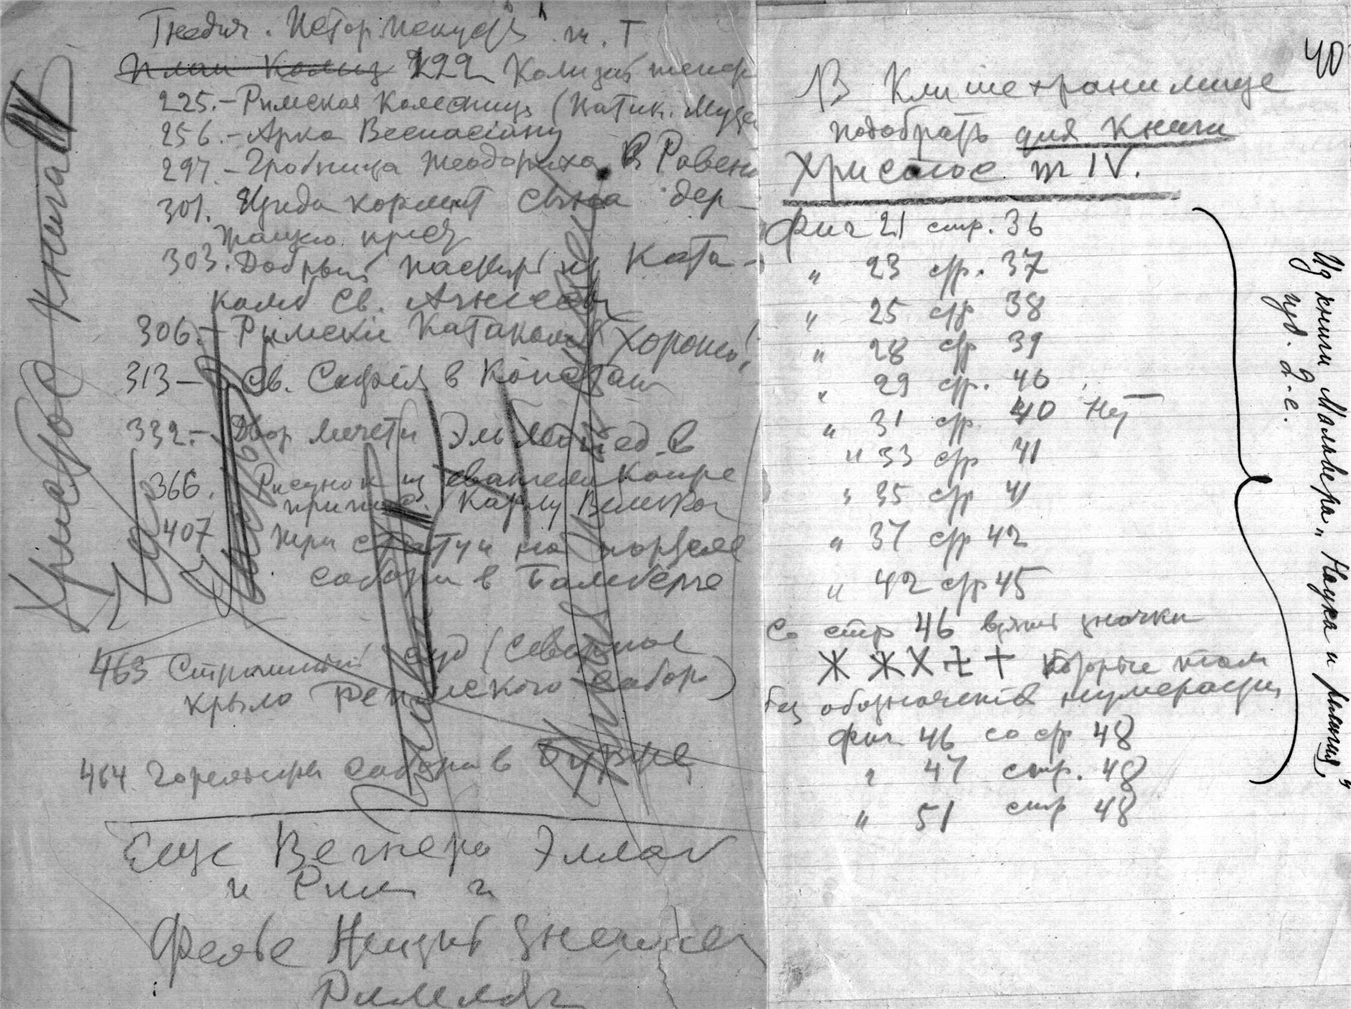 Гнедич. Истор Искусств т. I
План Колиз 222 Колизей тепер
225.- Римская Колесница (Ватик. Музе
256.- Арка Веспасіану
297.- Гробница Теодориха в Равен
301. Изида кормит сына дер-
жащую крест
303. Добрый пастырь из Ката-
комб Св. Агнессы
306.- Римскіе Катакомбы (Хорошо!)
313- Св. Софія в Констан
332.- Двор мечети Эль в
366. Рисунок из евангелия Каире
Карлу Велик
407 Три статуи на портале
собора в Бамберге
463 Страшный суд (Северное
крыло Реймского собора)
464 Горельефы собора в Бурже
Еще Вегнера Эллада
и Рим и
Римлян
Христос книга IV
40
В Клишехранилище
подобрать для книги
Христос т IV.
фиг 21 стр. 36
" 23 стр. 37
" 25 стр 38
" 28 стр 39
" 29 стр. 40
" 31 стр. 40 Нет
" 33 стр 41
" 35 стр 41
" 37 стр 42
" 42 стр 45
Со стр 46 взять значки
Ж Ж Х 卍 + которые там
без обозначения нумерации
фиг 46 со стр 48
" 47 стр. 48
" 51 стр 48
Из книги Мальвера „Наука и религия"
изд. 2-е.